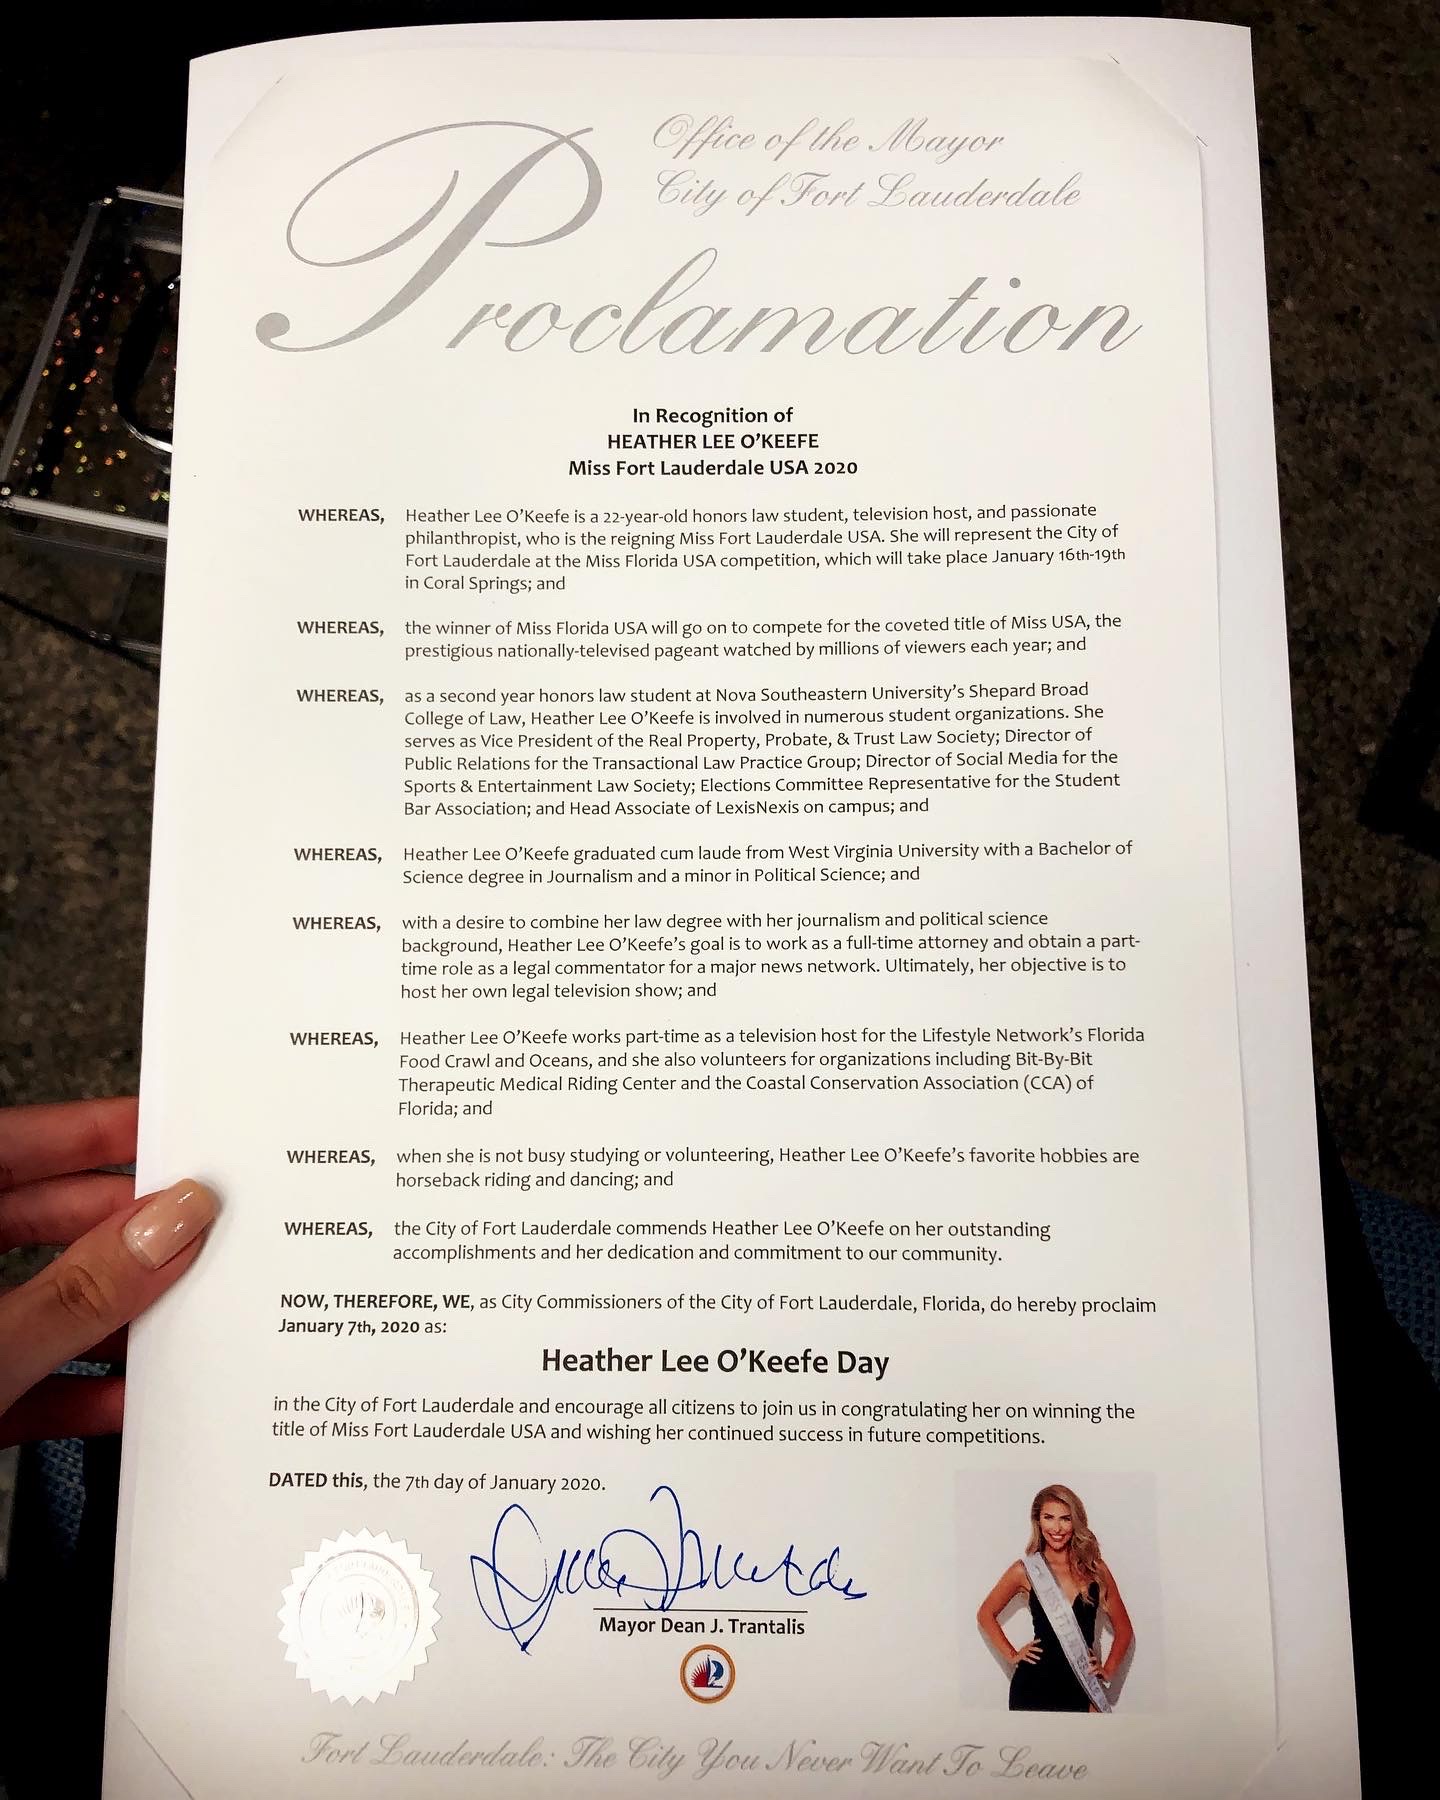 Office of the Mayor
City of Fort Lauderdale
Proclamation
In Recognition of
HEATHER LEE O'KEEFE
Miss Fort Lauderdale USA 2020
WHEREAS, Heather Lee O'Keefe is a 22-year-old honors law student, television host, and passionate
philanthropist, who is the reigning Miss Fort Lauderdale USA. She will represent the City of
Fort Lauderdale at the Miss Florida USA competition, which will take place January 16th-19th
in Coral Springs; and
WHEREAS, the winner of Miss Florida USA will go on to compete for the coveted title of Miss USA, the
prestigious nationally-televised pageant watched by millions of viewers each year; and
WHEREAS, as a second year honors law student at Nova Southeastern University's Shepard Broad
College of Law, Heather Lee O'Keefe is involved in numerous student organizations. She
serves as Vice President of the Real Property, Probate, & Trust Law Society; Director of
Public Relations for the Transactional Law Practice Group; Director of Social Media for the
Sports & Entertainment Law Society; Elections Committee Representative for the Student
Bar Association; and Head Associate of LexisNexis on campus; and
WHEREAS, Heather Lee O'Keefe graduated cum laude from West Virginia University with a Bachelor of
Science degree in Journalism and a minor in Political Science; and
WHEREAS, with a desire to combine her law degree with her journalism and political science
background, Heather Lee O'Keefe's goal is to work as a full-time attorney and obtain a part-
time role as a legal commentator for a major news network. Ultimately, her objective is to
host her own legal television show; and
WHEREAS, Heather Lee O'Keefe works part-time as a television host for the Lifestyle Network's Florida
Food Crawl and Oceans, and she also volunteers for organizations including Bit-By-Bit
Therapeutic Medical Riding Center and the Coastal Conservation Association (CCA) of
Florida; and
WHEREAS, when she is not busy studying or volunteering, Heather Lee O'Keefe's favorite hobbies are
horseback riding and dancing; and
WHEREAS, the City of Fort Lauderdale commends Heather Lee O'Keefe on her outstanding
accomplishments and her dedication and commitment to our community.
NOW, THEREFORE, WE, as City Commissioners of the City of Fort Lauderdale, Florida, do hereby proclaim
January 7th, 2020 as:
Heather Lee O'Keefe Day
in the City of Fort Lauderdale and encourage all citizens to join us in congratulating her on winning the
title of Miss Fort Lauderdale USA and wishing her continued success in future competitions.
DATED this, the 7th day of January 2020.
Mayor Dean J. Trantalis
Fort Lauderdale: The City You Never Want To Leave